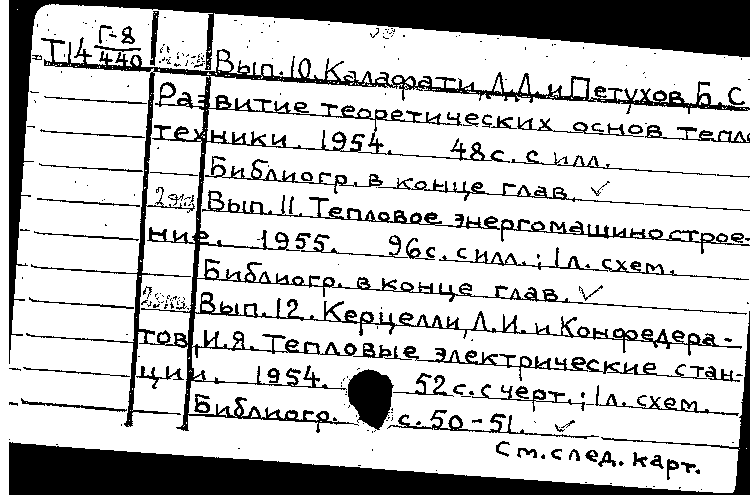 Т14 Г-8/440 2 экз Вып.10. Калафати, Д.Д. и Петухов, Б.С
Развитие теоретических основ тепло
техники. 1954. 48с. с илл.
Библиогр. в конце глав. ✓
2 экз Вып.11. Тепловое энергомашинострое-
ние. 1955. 96с. с илл.; 1л. схем.
Библиогр. в конце глав. ✓
2 экз. Вып.12. Керцелли, Л.И. и Конфедера-
тов, И.Я. Тепловые электрические стан-
ции. 1954. 52с. с черт.; 1л. схем.
Библиогр. с. 50-51. ✓
См. след. карт.